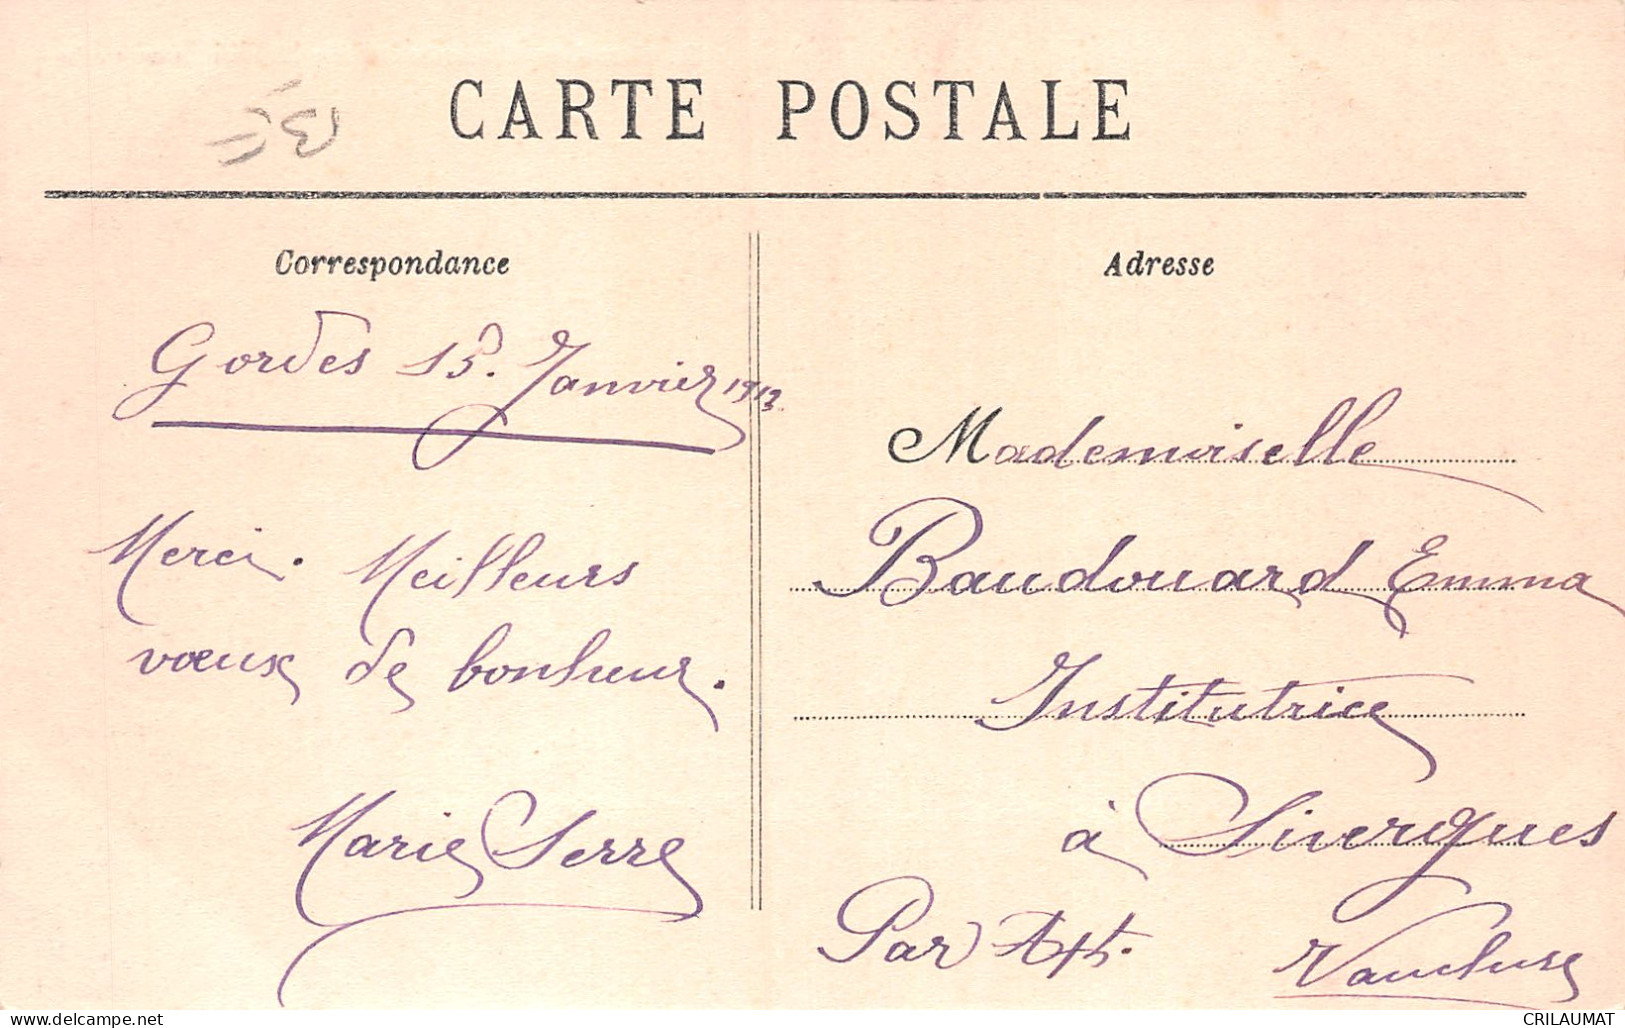 CARTE POSTALE
Correspondance
Gordes 13. Janvier 1912
Merci. Meilleurs
vœux de bonheur.
Marie Serre
Adresse
Mademoiselle
Baudouard Emma
Institutrice
à Sivergues
Par Apt.
Vaucluse
www.delcampe.net
CRILAUMAT